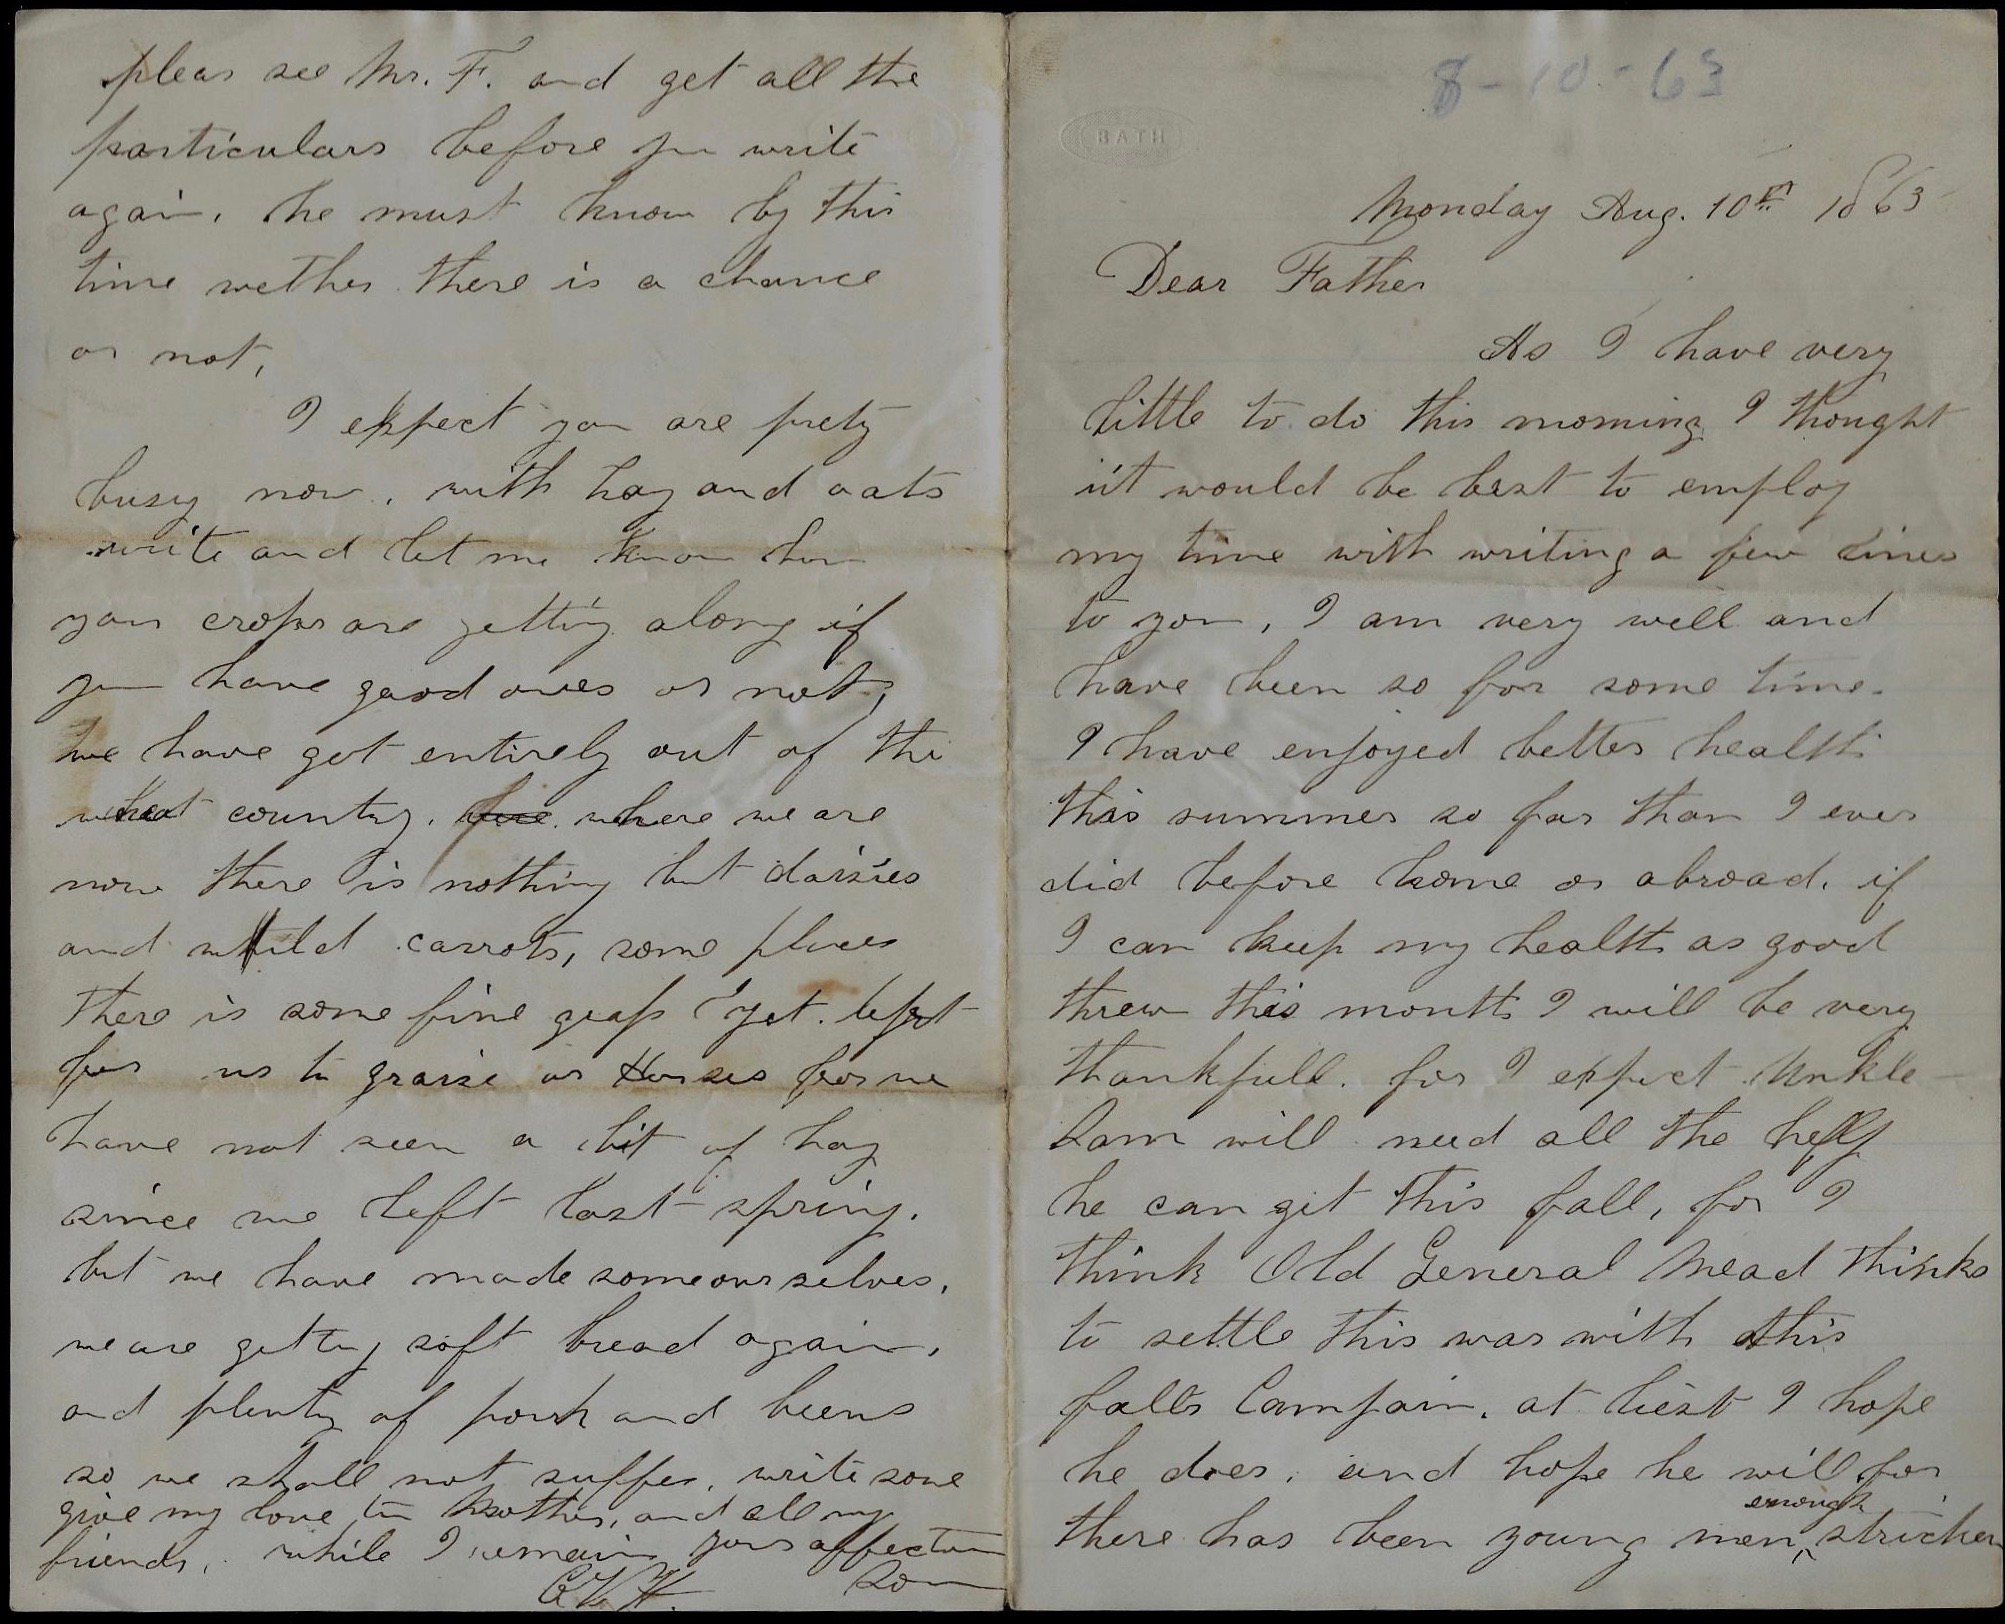 8-10-63
BATH
Monday Aug. 10th 1863
Dear Father
As I have very
little to do this morning I thought
it would be best to employ
my time with writing a few lines
to you, I am very well and
have been so for some time.
I have enjoyed better health
this summer so far than I ever
did before home or abroad. if
I can keep my health as good
threw this month I will be very
thankfull. for I expect Unkle
Sam will need all the help
he can git this fall, for I
think Old General Mead thinks
to settle this war with this
falls Campain. at liest I hope
he does. and hope he will for
there has been young men enough stricken
pleas see Mr. F. and get all the
particulars before you write
again. he must know by this
time wether there is a chance
or not,
I expect you are prety
busy now. with hay and oats
write and let me know how
your crops are getting along if
you have good ones or not,
we have got entirely out of the
wheat country. here where we are
now there is nothing but daisies
and wild carrots, some places
there is some fine grass yet left
for us to graise our Horses for we
have not seen a bit of hay
since we left last spring.
but we have made some ourselves.
we are getting soft bread again.
and plenty of pork and beens
so we shall not suffer. write sone
give my love to Mother, and all my
friends. while I remain your affection
Son